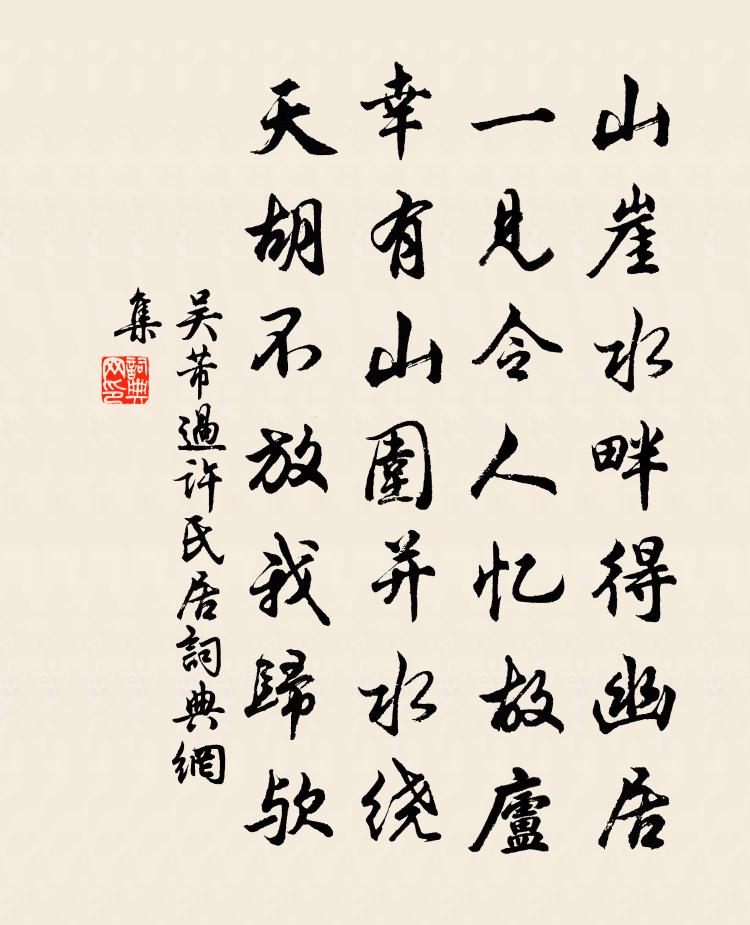 山崖水畔得幽居
一见令人忆故廬
幸有山圍并水绕
天胡不放我歸欤
吴芾過许氏居詞典網
集
詞典網印